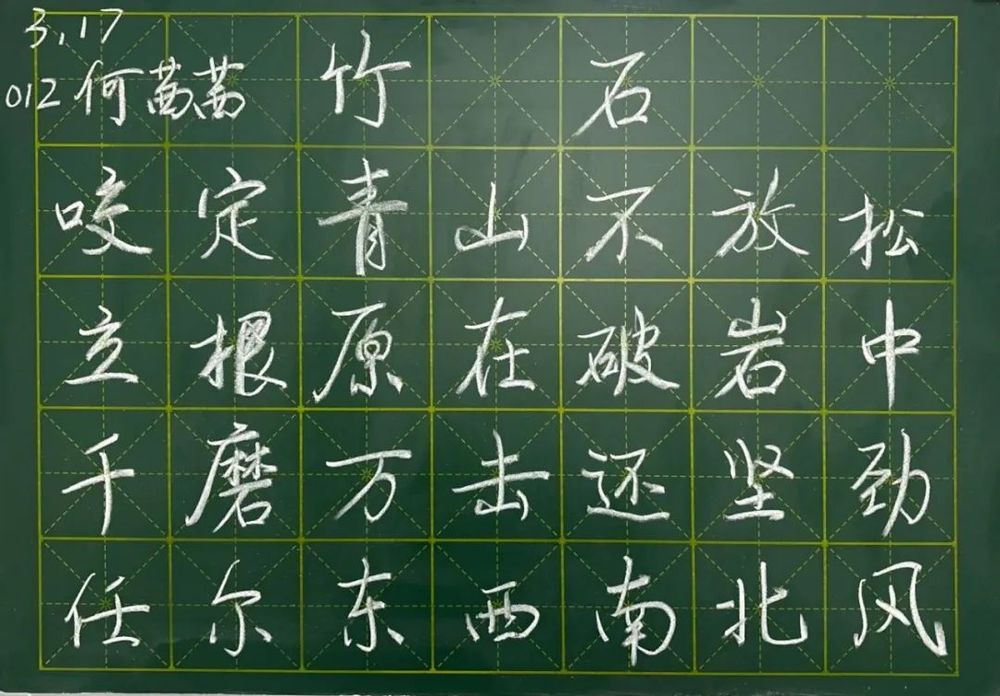 3.17
012 何茜茜 竹 石
咬定青山不放松
立根原在破岩中
千磨万击还坚劲
任尔东西南北风